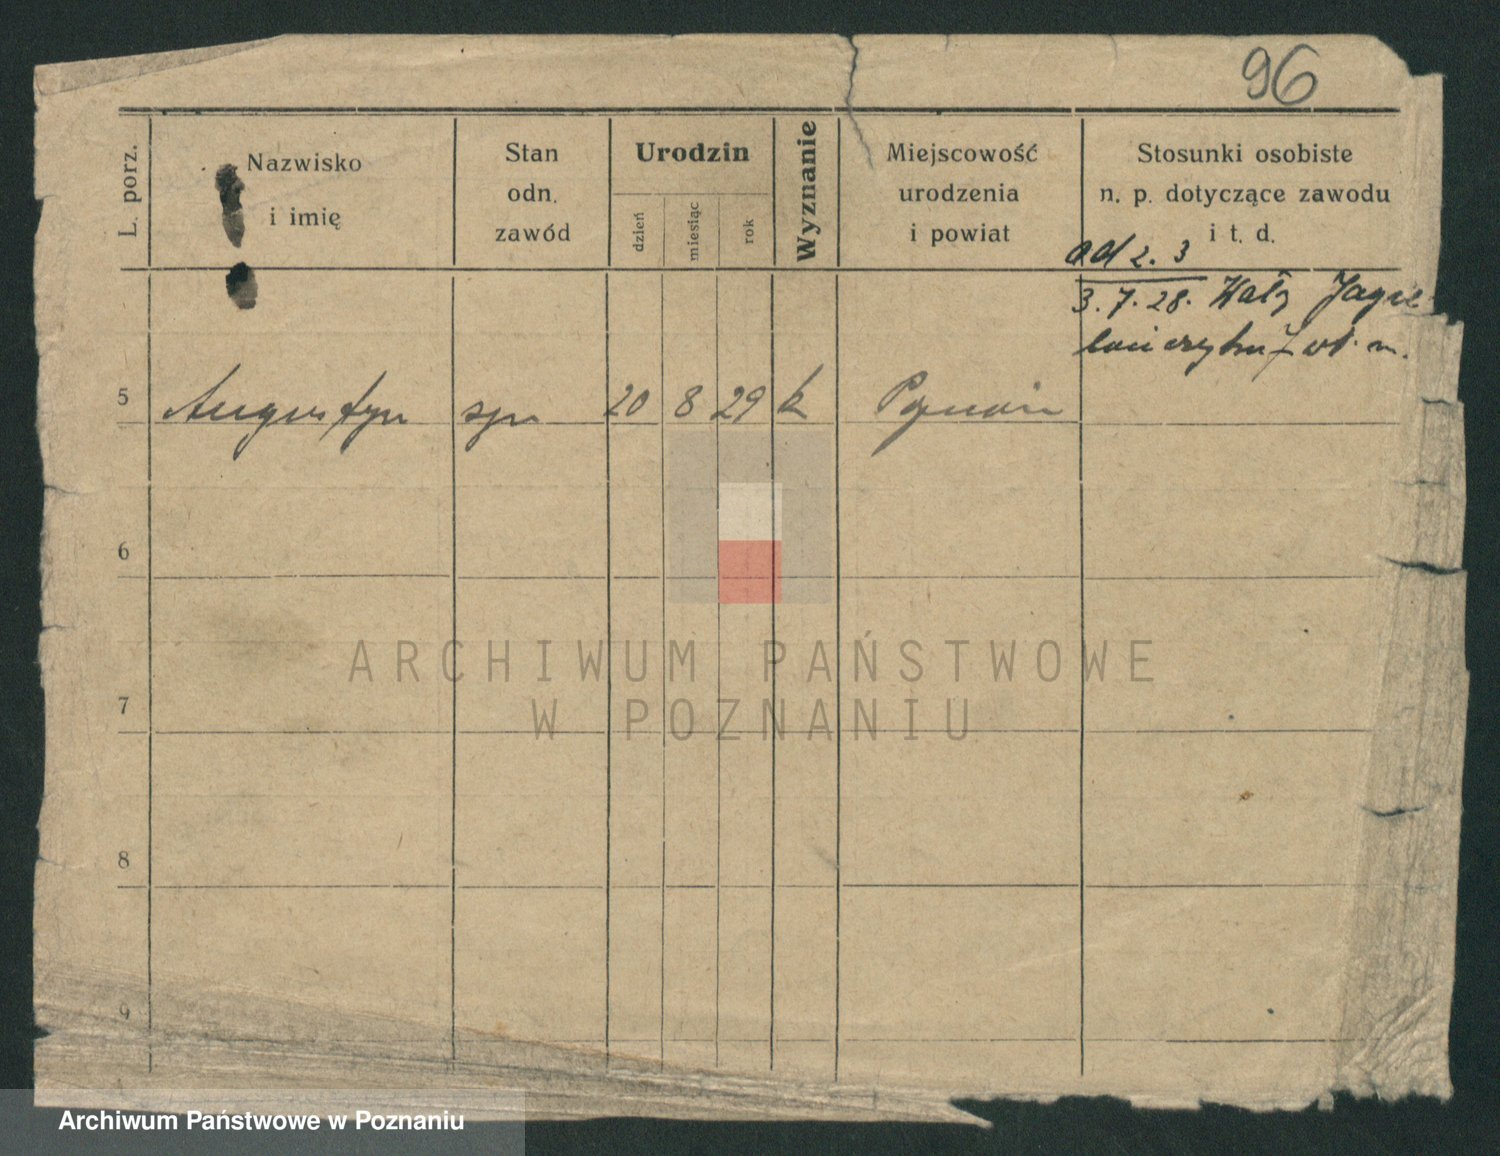 96
L. porz.
Nazwisko
i imię
Stan
odn.
zawód
Urodzin
dzień
miesiąc
rok
Wyznanie
Miejscowość
urodzenia
i powiat
Stosunki osobiste
n. p. dotyczące zawodu
i t. d.
ad 2. 3
3. 7. 28. Wały Jagie
lończyka
5 Augustyn syn 20 8 29 k Poznań
6
ARCHIWUM PAŃSTWOWE
W POZNANIU
7
8
9
Archiwum Państwowe w Poznaniu